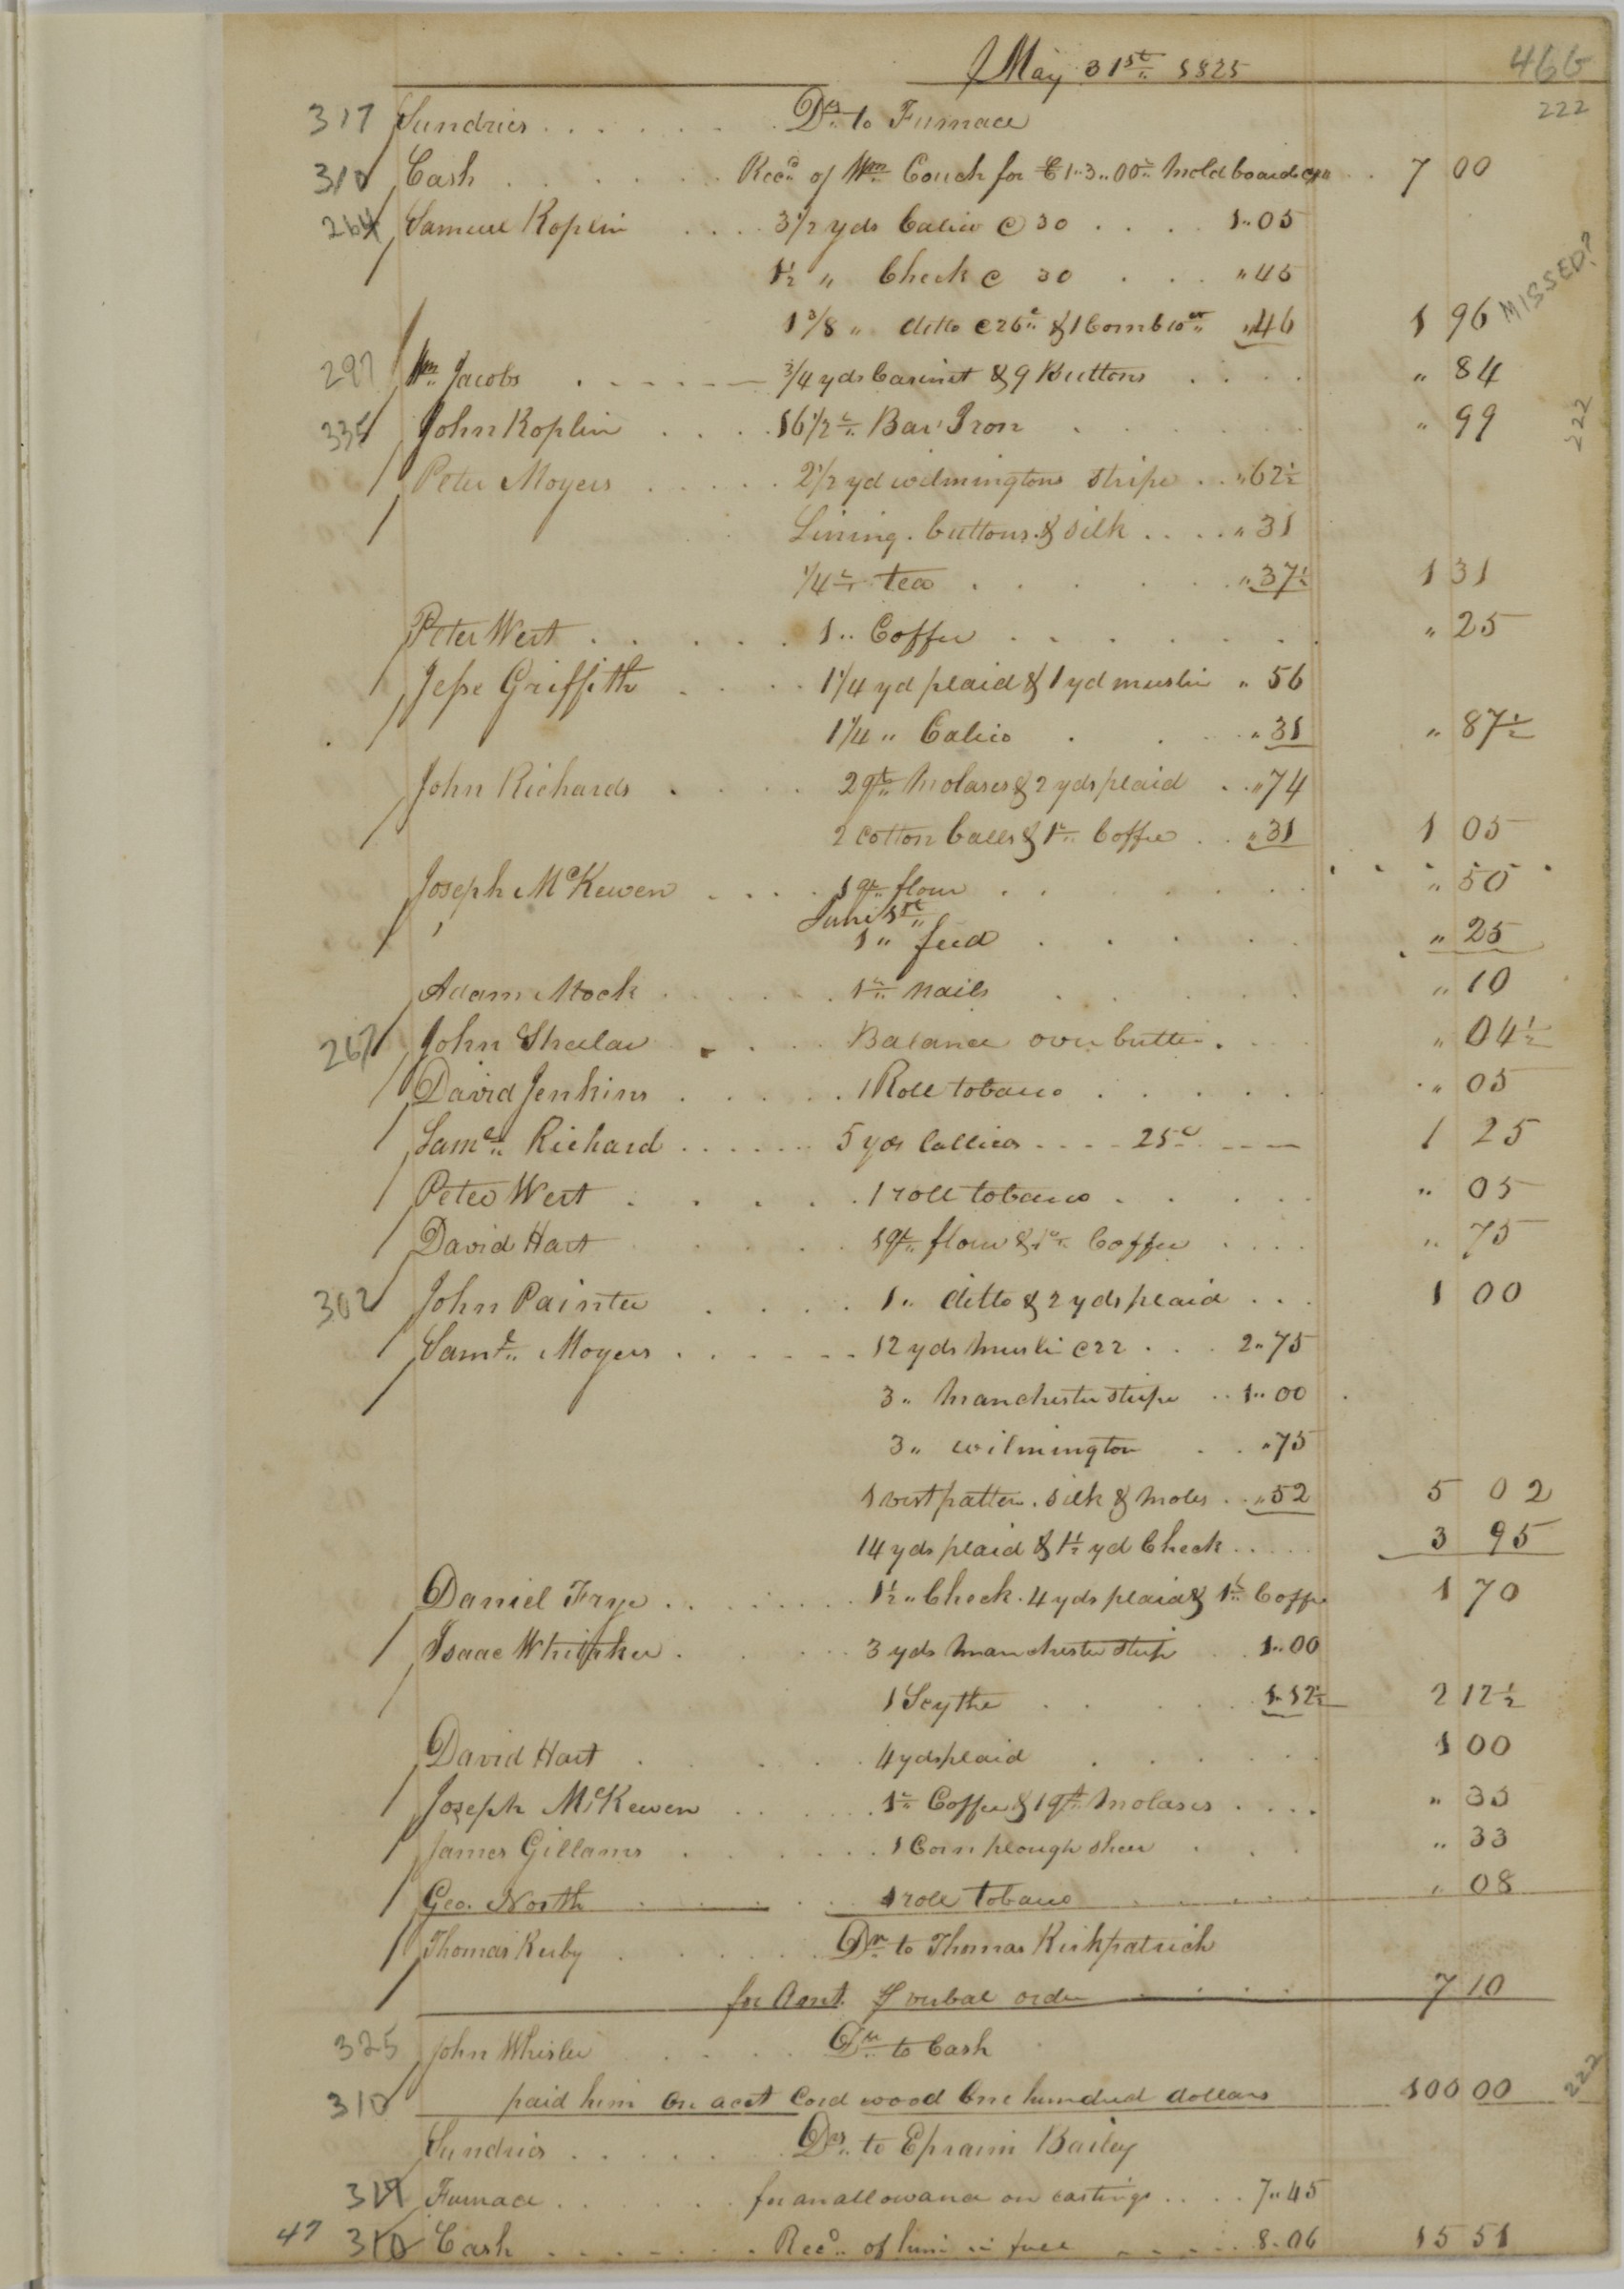 May 31st 1825
466
222
317 Sundries . . . . . . Drs to Furnace
310 Cash . . . . . . Recd of Wm Couch for C 1..3..00lb Moldboards &c . . 7 00
264 Samuel Koplin . . . . 3 1/2 yds Calico @ 30 . . . . 1..05
1 1/2 " Check @ 30 . . . "45
1 3/8 " ditto @ 26c & 1 Comb 10cts "46 1 96
MISSED?
297 Wm Jacobs . . . . . . 3/4 yds Casinet & 9 Buttons . . . . " 84
335 John Koplin . . . . 16 1/2 lb Bar Iron . . . . . . " 99
222
Peter Moyers . . . . . 2 1/2 yd wilmingtons stripe . . "62 1/2
Lining. buttons. & silk . . . . " 31
1/4 lb tea . . . . . . "37 1/2 1 31
Peter Wert . . . . . 1 " Coffee . . . . . . . " 25
Jesse Griffith . . . . 1 1/4 yd plaid & 1 yd muslin " 56
1 1/4 " Calico . . . " 31 " 87 1/2
John Richards . . . . 2 qts Molases & 2 yds plaid . . "74
2 cotton balls & 1lb Coffee . . "31 1 05
Joseph McKewen . . . . 1 qr flour . . . . . . . " 50
June 1st
' 1 " feed . . . . . " 25
Adam Mock . . . . . . 1lb nails . . . . " 10
267 John Sheelar . . . . Balance over butter . . . " 04 1/2
David Jenkins . . . . . 1 Roll tobacco . . . . . " 05
Saml Richard . . . . . . 5 yds Callico . . . . 25c . . . 1 25
Peter Wert . . . . . 1 roll tobacco . . . . . " 05
David Hart . . . . . 1 qr flour & 1lb Coffee . . . . " 75
302 John Painter . . . . 1 " ditto & 2 yds plaid . . . 1 00
Saml Moyers . . . . . . 12 yds muslin @ 22 . . . 2..75
3 " Manchester stripe . . 1..00
3 " wilmington . . "75
1 vest pattern. silk & Moles . . "52 5 02
14 yds plaid & 1 1/2 yd Check . . . . . 3 95
Daniel Frye . . . . . . . 1 1/2 " Check. 4 yds plaid & 1lb Coffee 1 70
Isaac Whitaker . . . . 3 yds Manchester strip . . 1..00
1 Scythe . . . . . 1.12 1/2 2 12 1/2
David Hart . . . . 4 yds plaid . . . . . 1 00
Joseph McKewen . . . . . . 1lb Coffee & 1 qt Molases . . . . " 33
James Gillams . . . . . . 1 Corn plough shear . . . " 33
Geo. North . . . . 1 role tobacco . . . . " 08
Thomas Kerby . . . . . . Dr to Thomas Kirkpatrick
for Amt. of verbal order . . . . 7 10
325 John Whisler . . . . Dr to Cash
310 paid him on acct Cord wood One hundred dollars 100 00
222
Sundries . . . . . . Drs to Epraim Bailey
317 Furnace . . . . . . . for an allowance on castings . . . . 7..45
47 310 Cash . . . . . . . Recd of him in full . . . . . 8.06 15 51